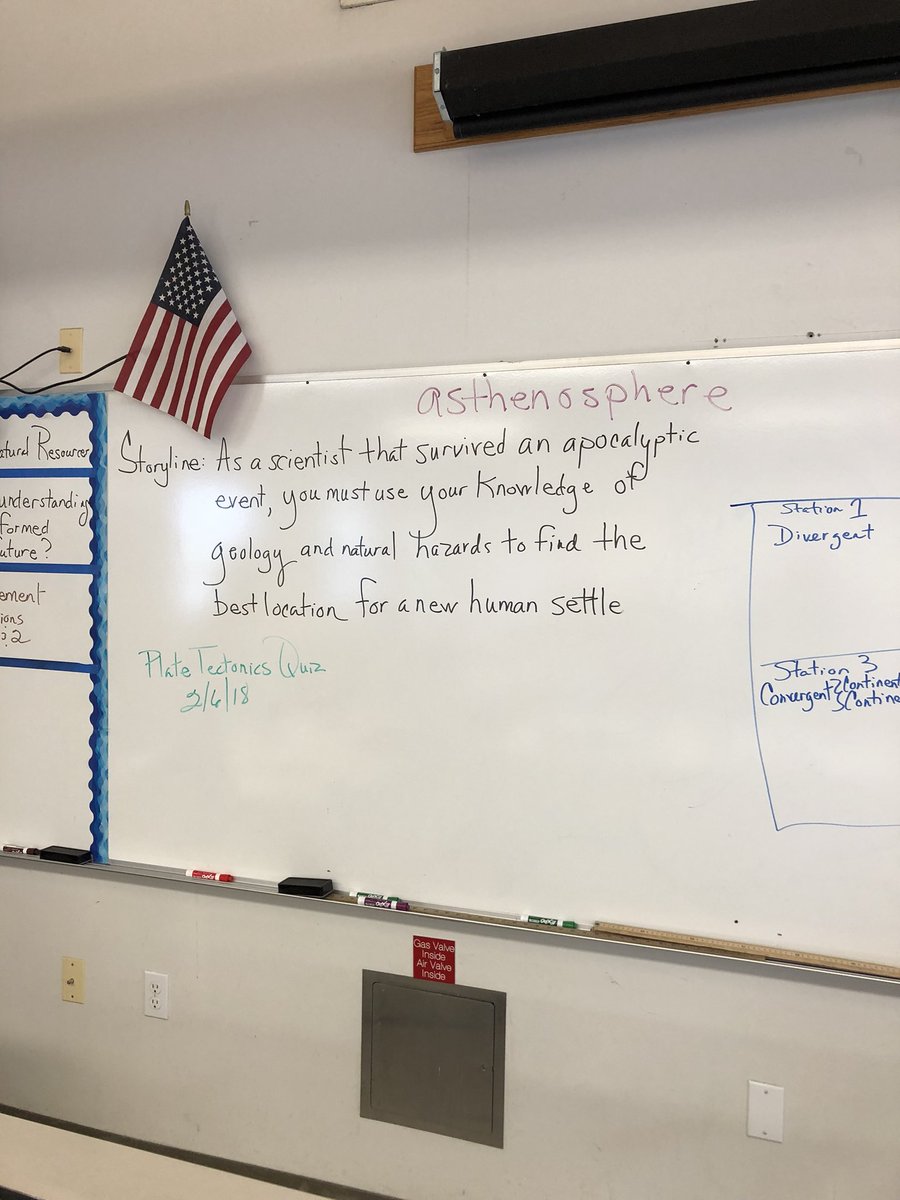 asthenosphere
Storyline: As a scientist that survived an apocalyptic
event, you must use your Knowledge of
geology and natural hazards to find the
best location for a new human settle
Plate Tectonics Quiz
2/6/18
Resources
understanding
formed
Station 1
Divergent
Station 3
Convergent
Gas Valve
Inside
Air Valve
Inside